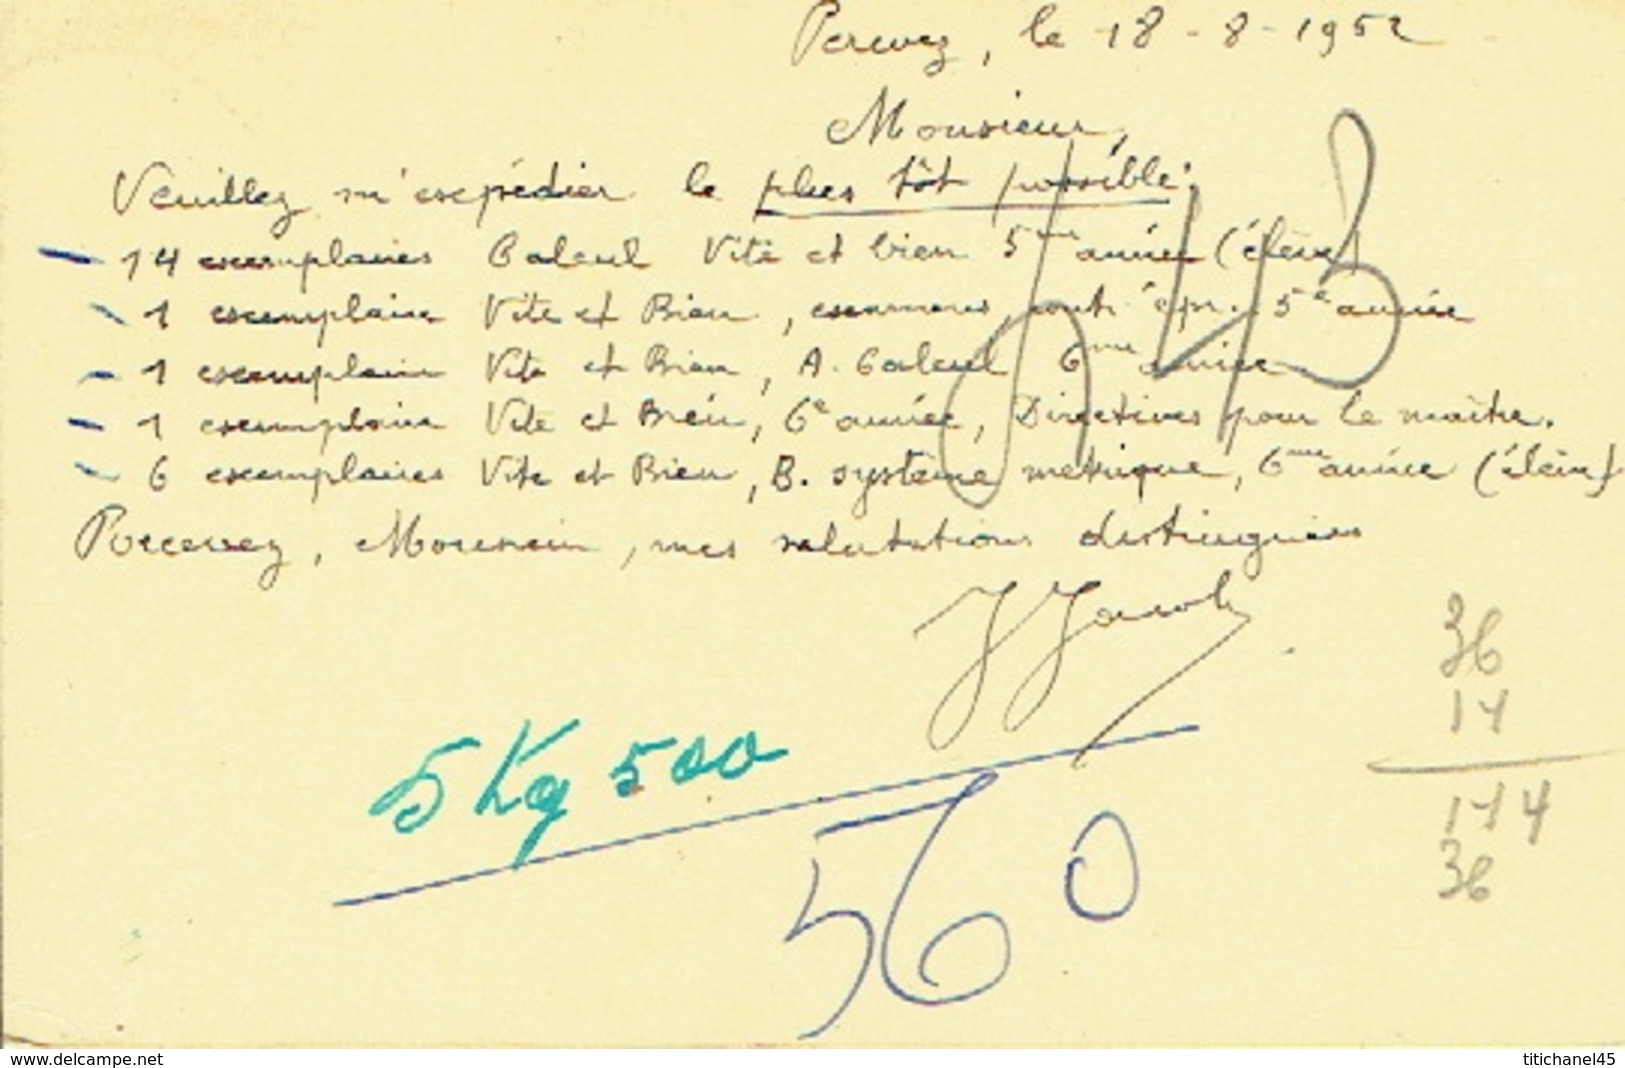 Perwez, le 18-8-1952
Monsieur,
Veuillez m'expédier le plus tôt possible:
- 14 exemplaires Calcul Vite et bien 5me année (élève)
- 1 exemplaire Vite et Bien, examens, cont. épr. 5e année
- 1 exemplaire Vite et Bien, A. Calcul 6me année
- 1 exemplaire Vite et Bien, 6e année, Directives pour le maître.
- 6 exemplaires Vite et Bien, B. système métrique, 6me année (élève)
Recevez, Monsieur, mes salutations distinguées
J Jacob
36
14
144
36
5 Kg 500
560
www.delcampe.net
titichanel45